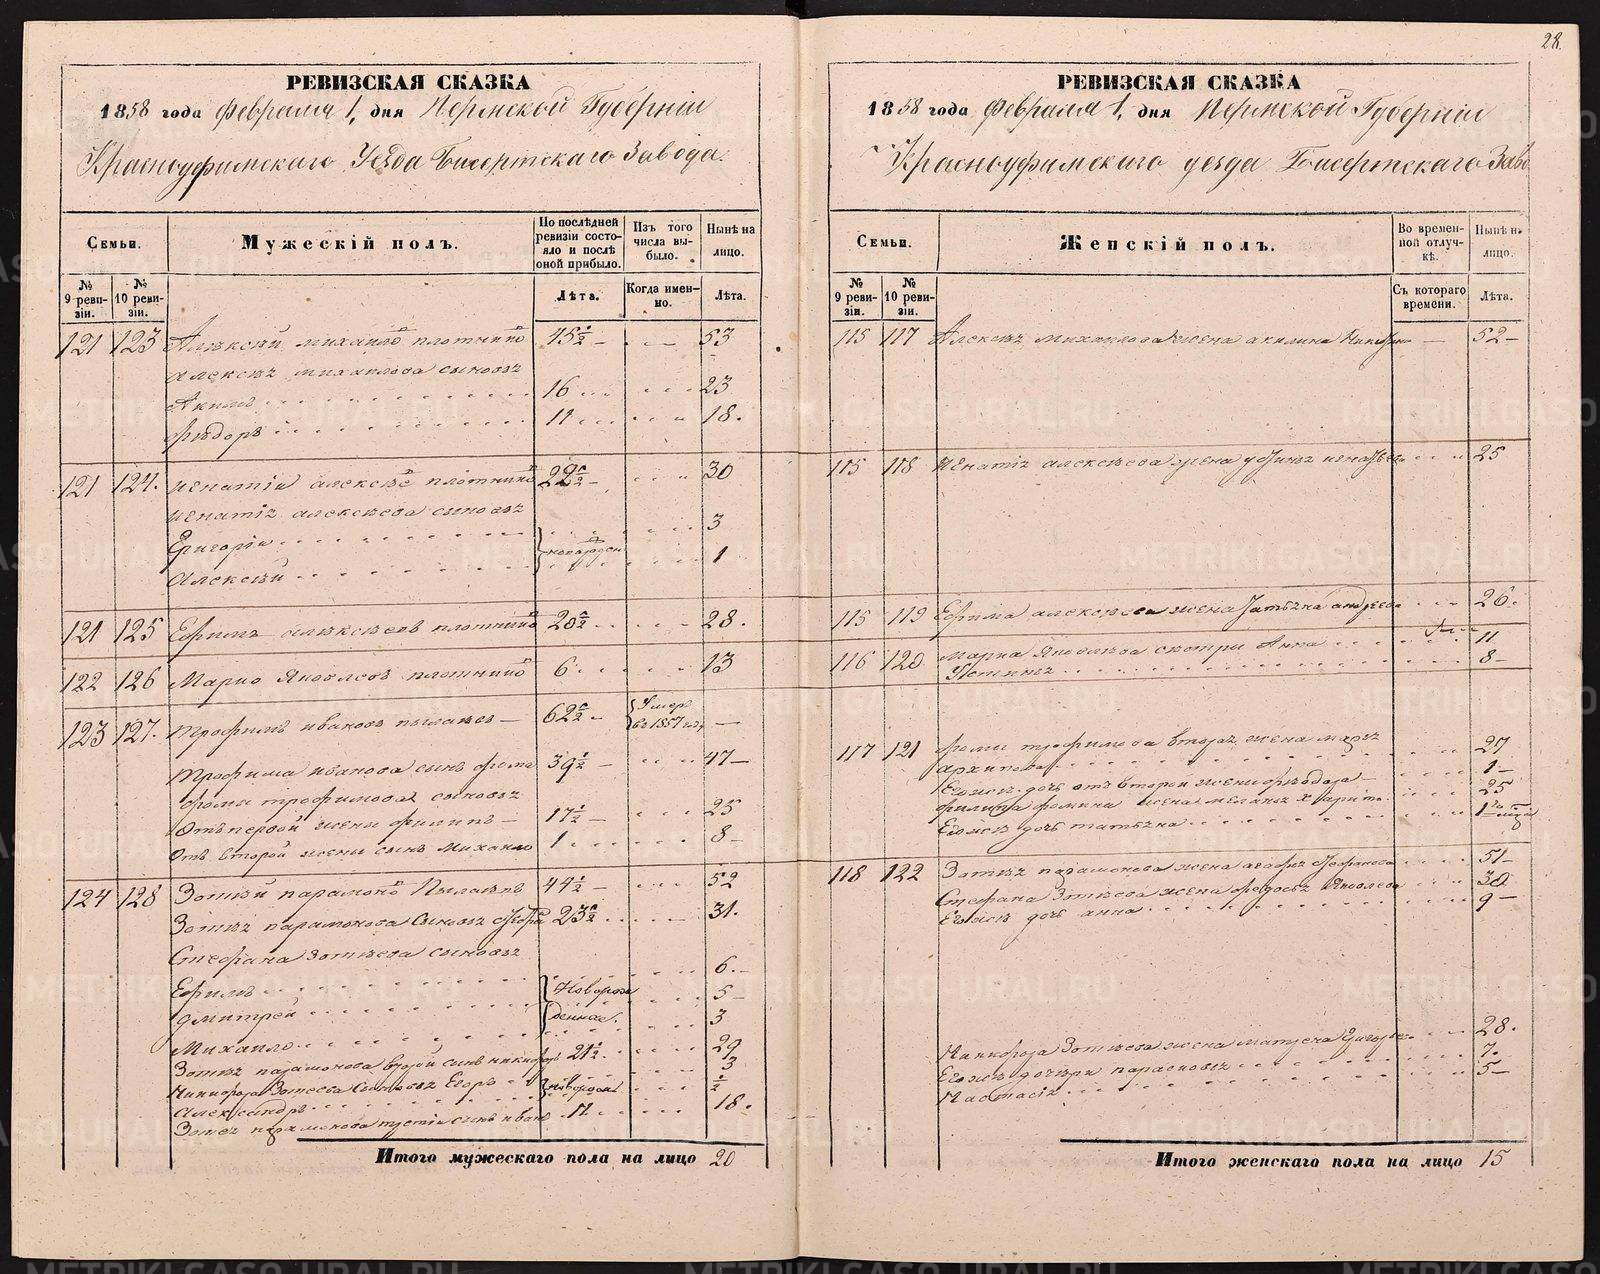 РЕВИЗСКАЯ СКАЗКА
1858 года Февраля 1, дня Пермской Губерніи
Красноуфимскаго Уезда Бисертскаго Завода.
Семьи.
Мужескій полъ.
По послѣдней ревизіи состояло и послѣ оной прибыло.
Изъ того числа выбыло.
Нынѣ на лицо.
№ 9 ревизіи.
№ 10 ревизіи.
Лѣта.
Когда именно.
Лѣта.
121 123 Алексѣй михайло плотник 45½ 53
алексѣя михайлова сыновья
Акимъ 16 23
Фѣдоръ 11 18.
121 124. игнатіи алексѣе 22½ 30
игнатія алексѣева сыновья
Григоріи 3
новорожден
Алексѣй 1
121 125 Ефимъ алѣксѣевъ 20½ 28.
122 126 Марко Яковлевъ 6 13
123 127. трофимъ ивановъ пылаевъ 62½ Умеръ въ 1857 году —
трофима иванова сынъ фома 39½ 47
фомы трофимова сыновья
Отъ первой жены филипъ 17½ 25
Отъ второй жены сынъ Михайло 1 8
124 128 Зотѣй парамоно Пылаевъ 44½ 52
Зотѣя парамонова Сыновья 23½ 31.
Стефана зотѣева сыновья
Ефимъ 6.
Новорожденные.
дмитрей 5
Михайло 3
Зотѣя парамонова второй сынъ никифоръ 21½ 29
Никифора Зотеева Сыновья Егоръ 3
новорожден
Александръ ½
Зотея парамонова третіи сынъ иванъ 11 18.
Итого мужескаго пола на лицо 20
28.
РЕВИЗСКАЯ СКАЗКА
1858 года Февраля 1, дня Пермской Губерніи
Красноуфимскаго уезда Бисертскаго Заво
Семьи.
Женскій полъ.
Во временной отлучкѣ.
Нынѣ на лицо.
№ 9 ревизіи.
№ 10 ревизіи.
Съ котораго времени.
Лѣта.
115 117 Алексѣя михайлова жена акилина 52
115 118 Игнатія алексѣева жена 25
115 119 Ефима алексѣева жена татьяна андреева 26.
116 120 Марка Яковлева сестры Анна 11
Устинья 8
117 121 фомы трофимова вторая жена марья 27
архипова
Егожъ дочь отъ второй жены 1
филипа фомина жена меланья 25
Егожъ дочь татьяна 1½
118 122 Зотѣя парамонова жена 51
Стефана Зотѣева жена федосья Яковлева 30
Егожъ дочь анна 9
Никифора Зотѣева жена матрена 28.
Егожъ дочери парасковья 7.
Настасія 5
Итого женскаго пола на лицо 15
METRIKI.GASO-URAL.RU